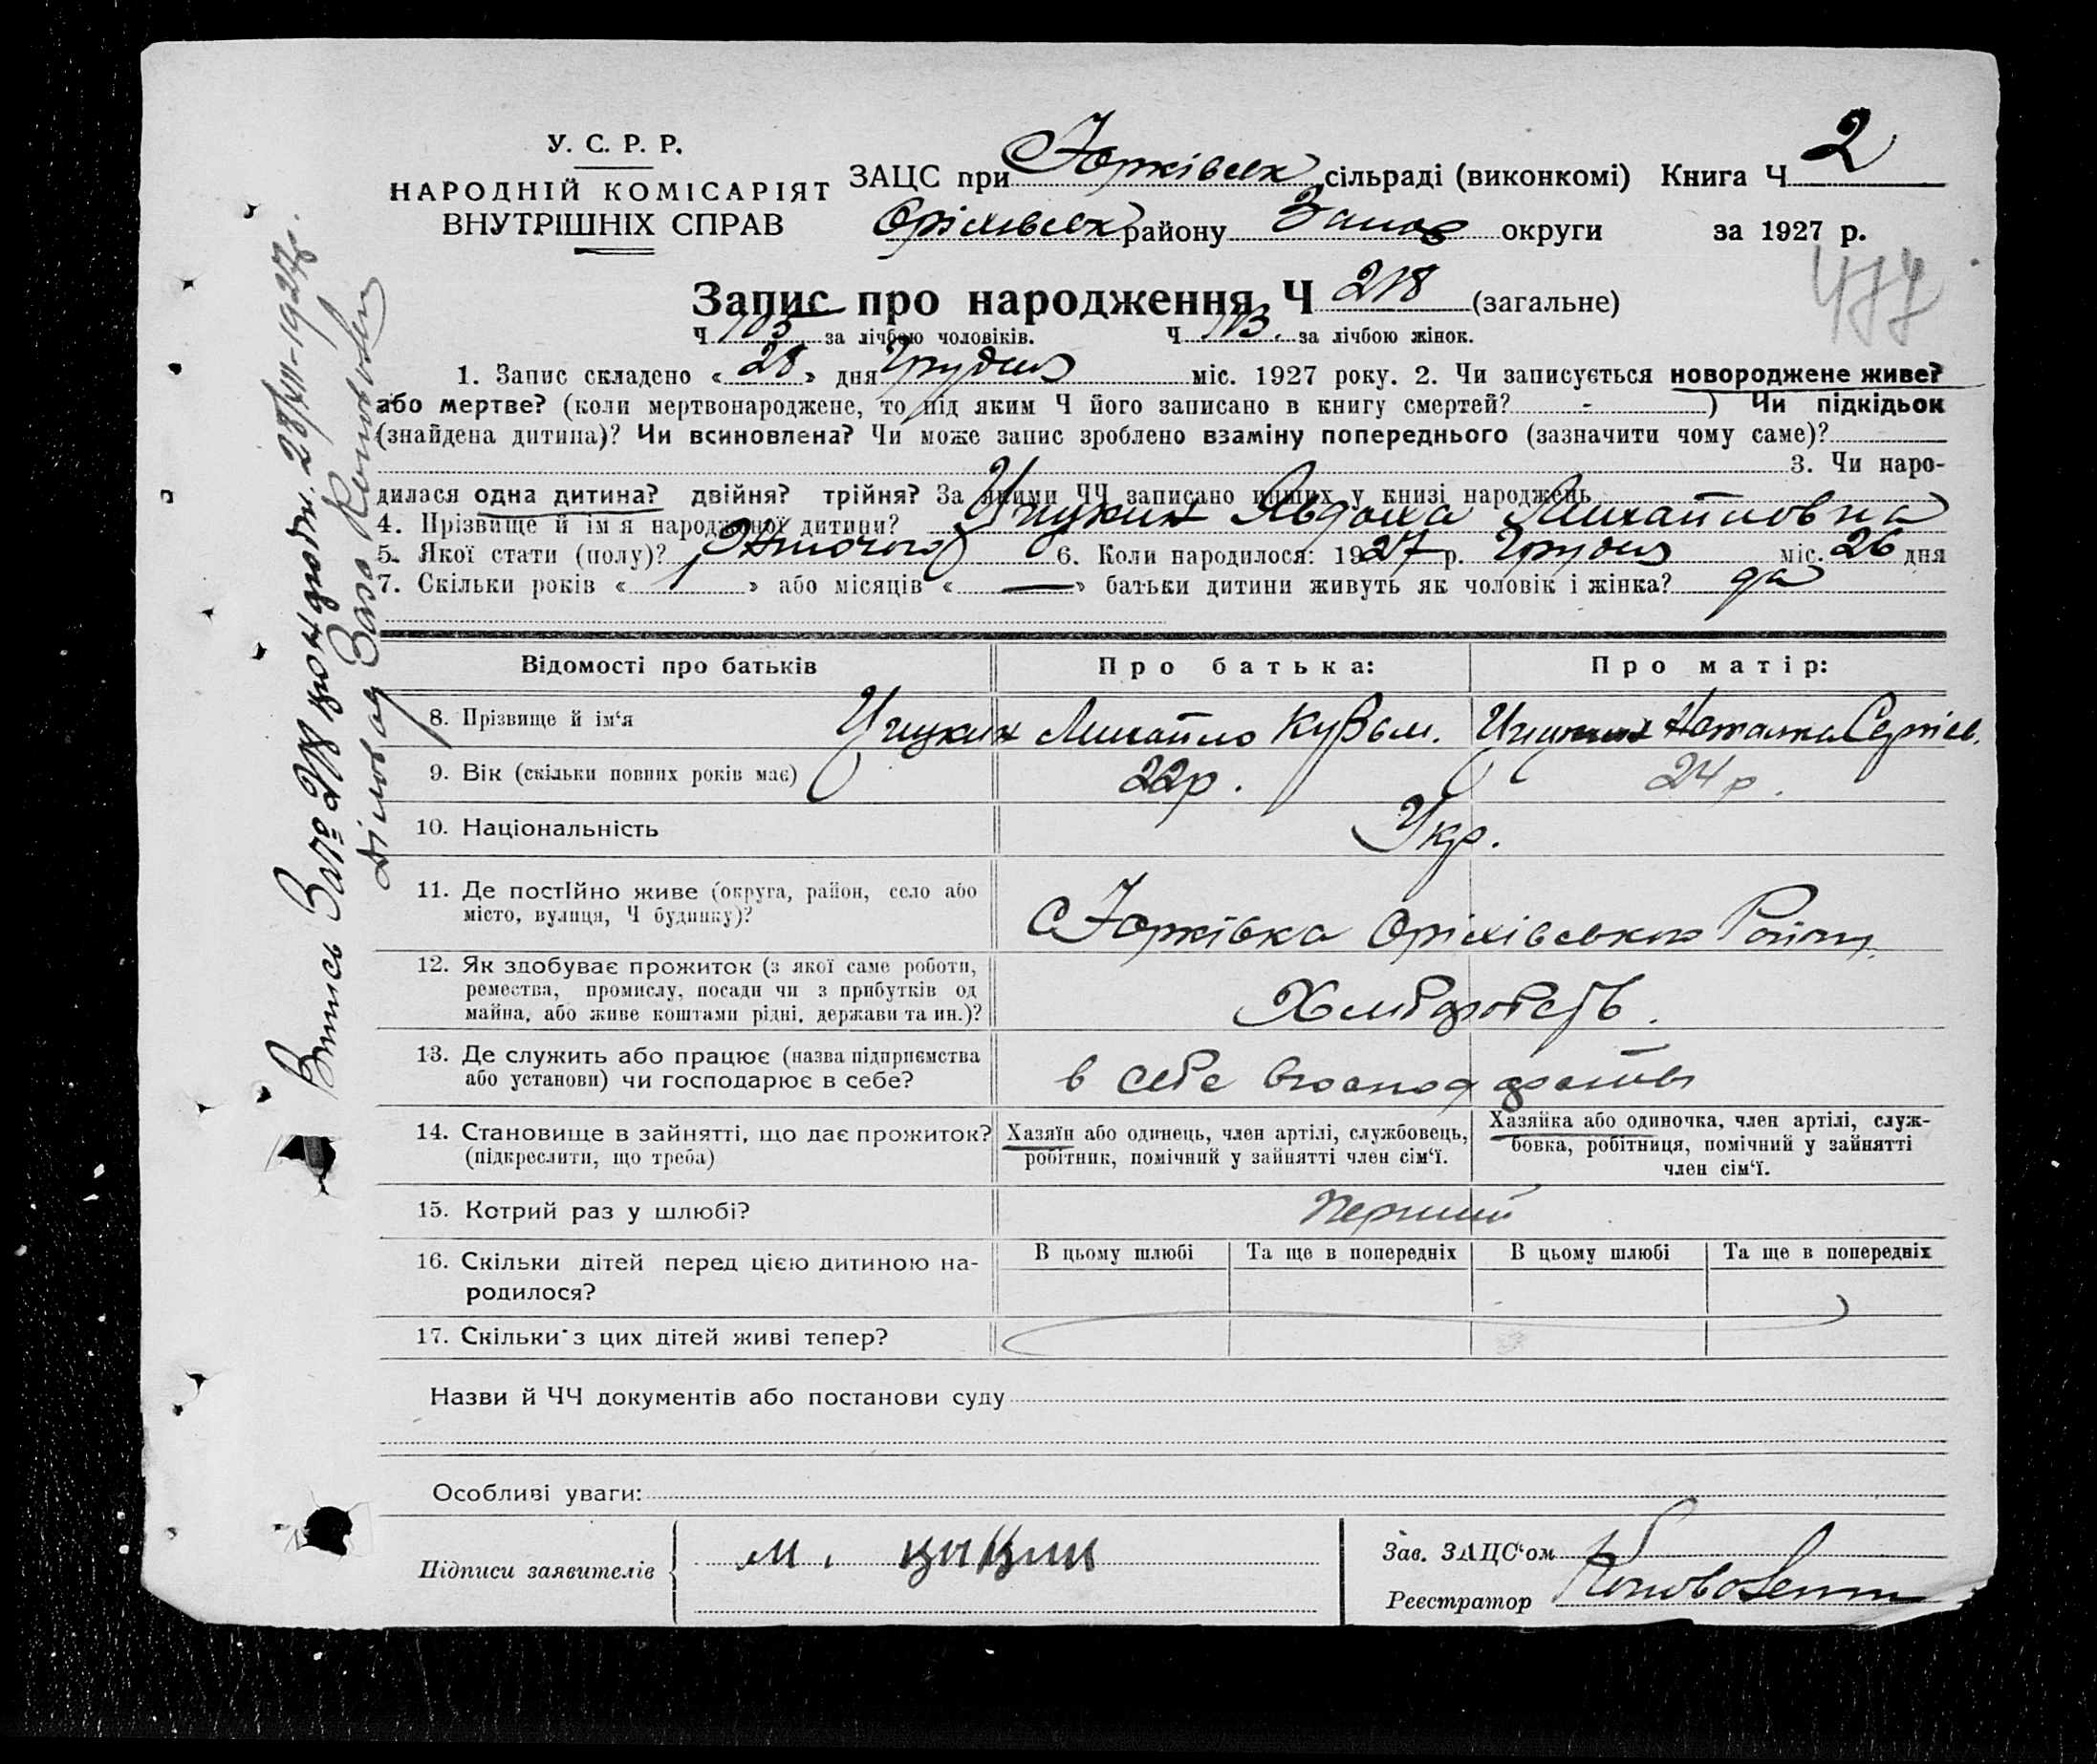 У. С. Р. Р.
НАРОДНІЙ КОМІСАРІЯТ
ВНУТРІШНІХ СПРАВ
ЗАЦС при Юрківськ сільраді (виконкомі) Книга Ч 2
Оріхівськ району Запор округи за 1927 р.
477
Запис про народження Ч 218 (загальне)
Ч 105 за лічбою чоловіків. Ч 113. за лічбою жінок.
1. Запис складено « 28 » дня Грудня міс. 1927 року. 2. Чи записується новороджене живе?
або мертве? (коли мертвонароджене, то під яким Ч його записано в книгу смертей? - ) Чи підкідьок
(знайдена дитина)? Чи всиновлена? Чи може запис зроблено взаміну попереднього (зазначити чому саме)?
3. Чи наро-
дилася одна дитина? двійня? трійня? За якими ЧЧ записано инших у книзі народжень
4. Прізвище й ім'я народженої дитини? Явдоха Михайловна
5. Якої стати (полу)? Жіночого 6. Коли народилося: 1927 р. Грудня міс. 26 дня
7. Скільки років « 1 » або місяців « — » батьки дитини живуть як чоловік і жінка? да
Відомості про батьків Про батька: Про матір:
8. Прізвище й ім'я Михайло Кузьм. Наталка Сергієв.
9. Вік (скільки повних років має) 22 р. 24 р.
10. Національність Укр.
11. Де постІйно живе (округа, район, село або
місто, вулиця, Ч будинку)?
С Юрківка Оріхівського Району.
12. Як здобуває прожиток (з якої саме роботи,
ремества, промислу, посади чи з прибутків од
майна, або живе коштами рідні, держави та ин.)?
Хлібороб.
13. Де служить або працює (назва підприємства
або установи) чи господарює в себе?
в себе в господарстві
14. Становище в зайнятті, що дає прожиток?
(підкреслити, що треба)
Хазяїн або одинець, член артілі, службовець,
робітник, помічний у зайнятті член сім'ї.
Хазяйка або одиночка, член артілі, служ-
бовка, робітниця, помічний у зайнятті
член сім'ї.
15. Котрий раз у шлюбі? Перший
16. Скільки дітей перед цією дитиною на-
родилося?
В цьому шлюбі Та ще в попередніх В цьому шлюбі Та ще в попередніх
17. Скільки з цих дітей живі тепер?
Назви й ЧЧ документів або постанови суду
Особливі уваги:
Підписи заявителів М. Цицкин
Зав. ЗАЦС'ом
Реєстратор
Випись За № 218 28/XII-1927р.
Діловод Загс